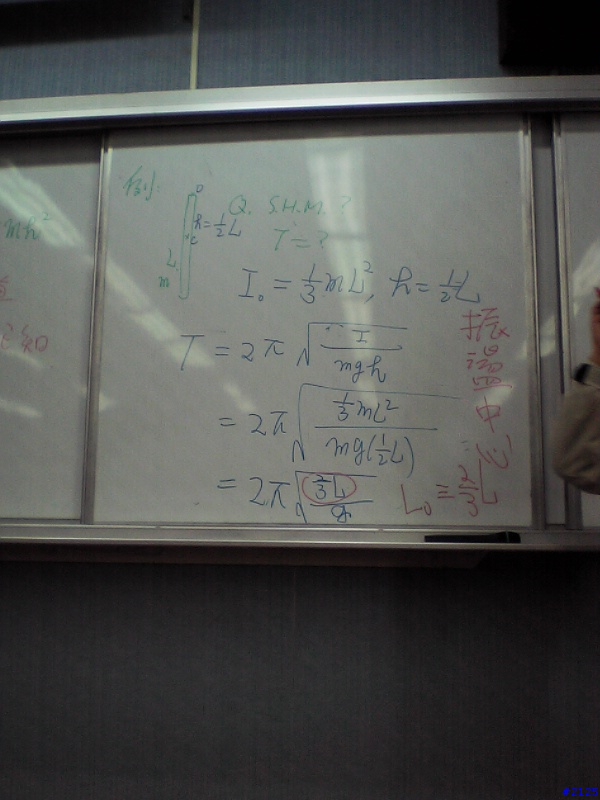 mh²
知
例:
O
h=½L
C
L
m
Q. S.H.M.?
T=?
I₀ = ⅓mL², h=½L
T = 2π√(I/mgh)
= 2π√(⅓mL²/mg(½L))
= 2π√(⅔L/g)
振盪中心:
L₀ ≡ ⅔L